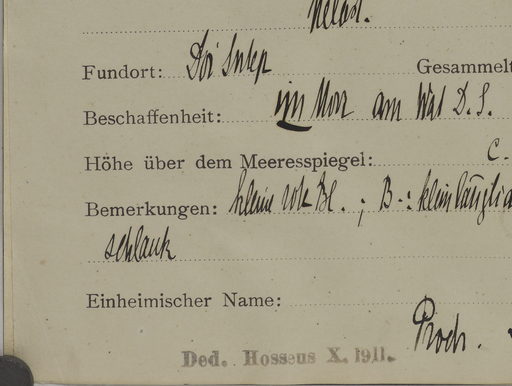 Fundort: Doi Sutep Gesammelt
Beschaffenheit: im Moor am Wat D. S.
Höhe über dem Meeresspiegel: c.
Bemerkungen: kleine rote Bl. ; B.: klein länglich
schlank
Einheimischer Name:
Proch.
Ded. Hosseus X. 1911.